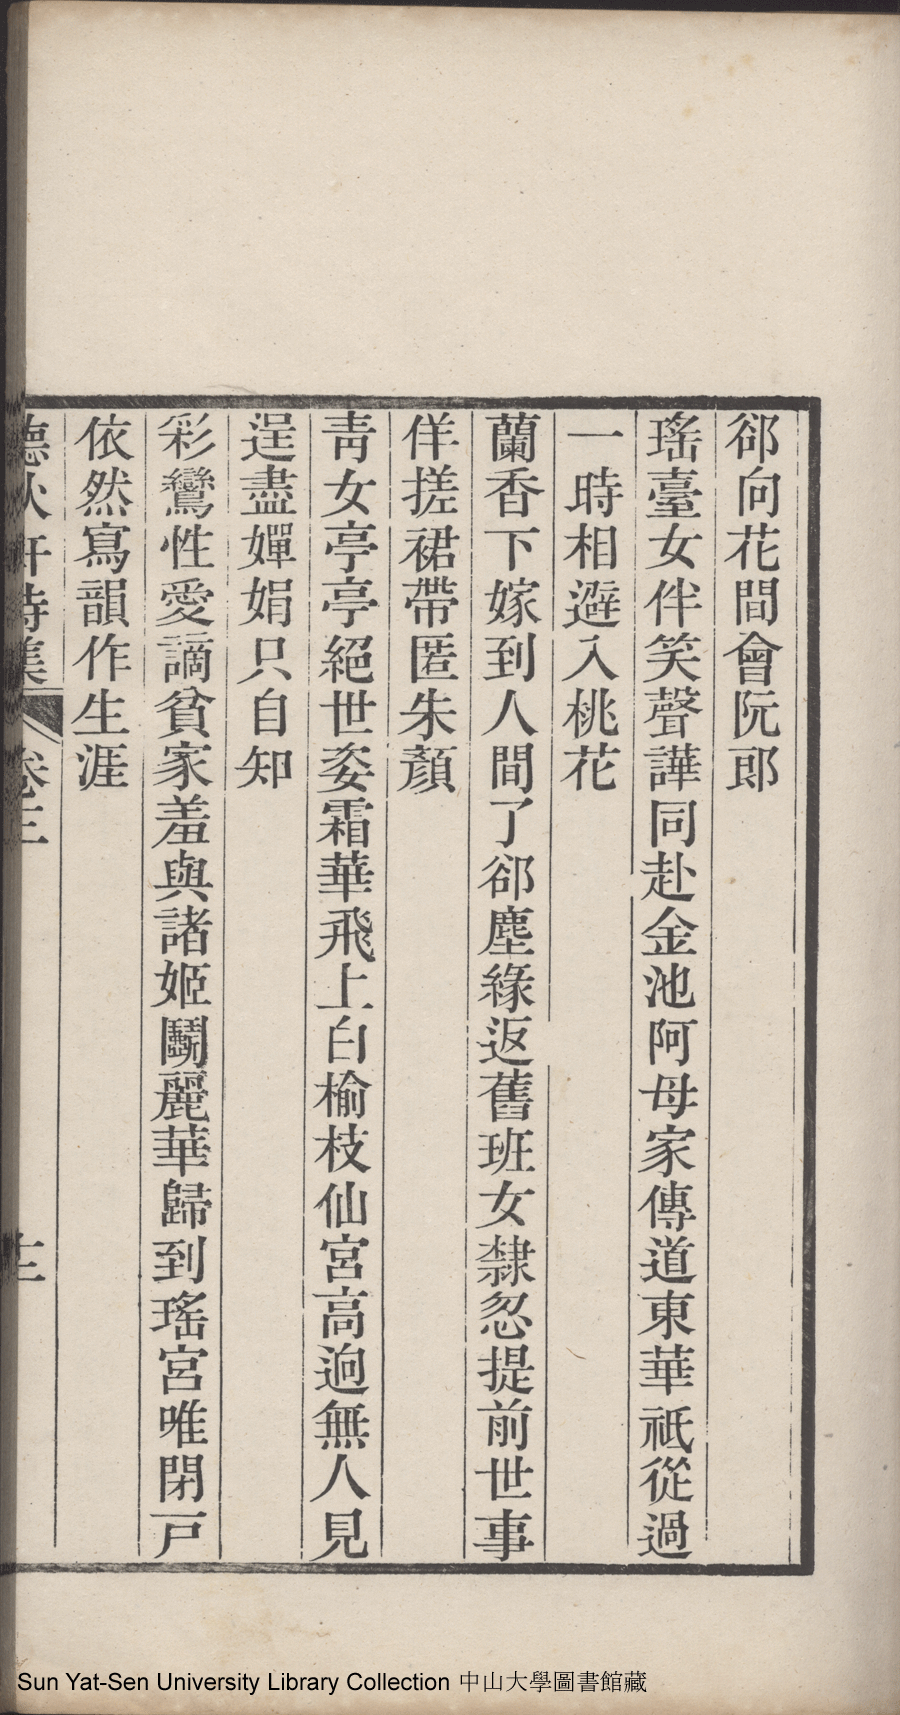 郤向花間會阮郎
瑤臺女伴笑聲譁同赴金池阿母家傳道東華祇從過
一時相避入桃花
蘭香下嫁到人間了郤塵緣返舊班女隸忽提前世事
佯搓裙帶匿朱顏
靑女亭亭絕世姿霜華飛上白榆枝仙宮高逈無人見
逞盡嬋娟只自知
彩鸞性愛謫貧家羞與諸姬鬭麗華歸到瑤宮唯閉戸
依然寫韻作生涯
聽秋軒詩集 卷三 十二
Sun Yat-Sen University Library Collection 中山大學圖書館藏